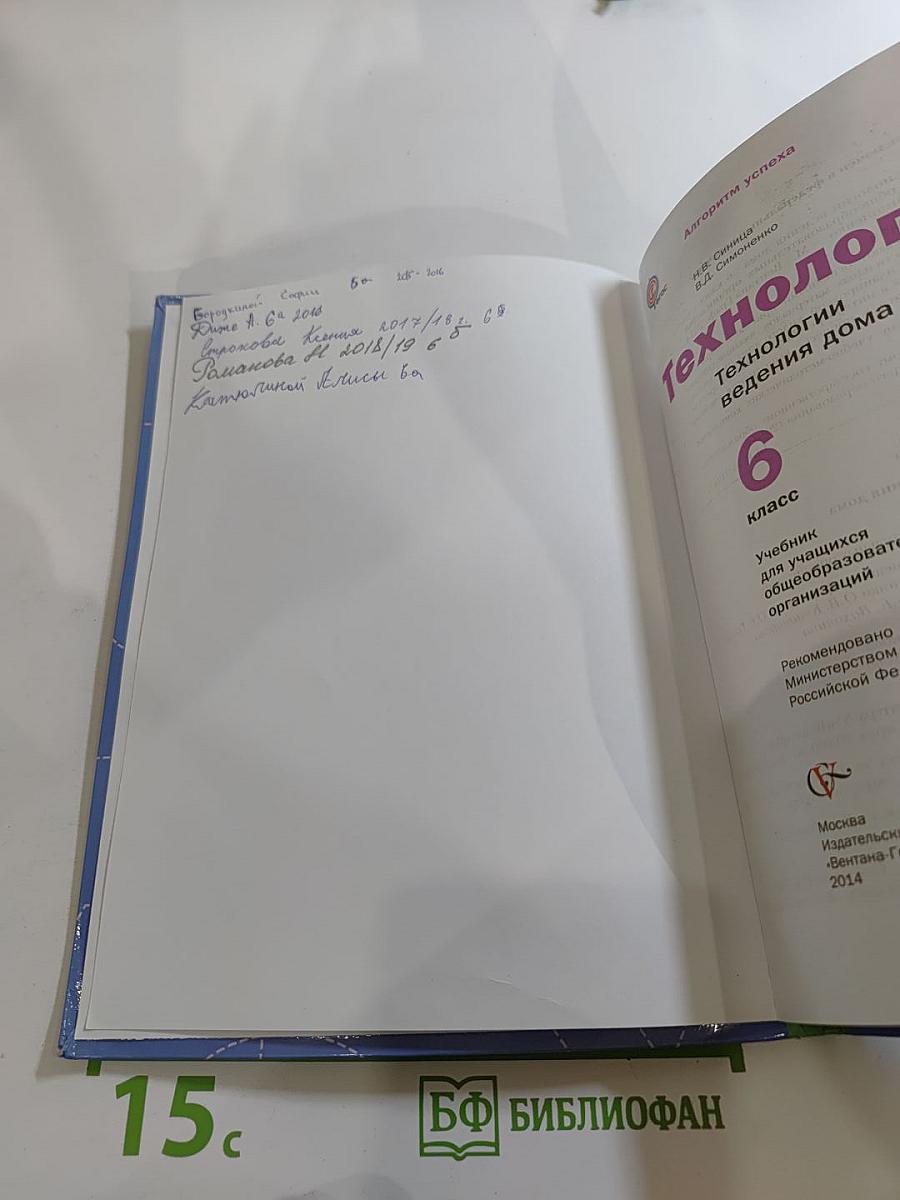 Бородкиной Софии 6а 2015-2016
А. 6а 2016
Строкова Ксения 2017/18 г. 6
Романова 2018/19 6 б
Алисы 6а
Алгоритм успеха
Н.В. Синица
В.Д. Симоненко
ФГОС
Технолог
Технологии
ведения дома
6
класс
Учебник
для учащихся
общеобразовате
организаций
Рекомендовано
Министерством
Российской Фе
Москва
Издательски
«Вентана-Г
2014
15 с
БФ БИБЛИОФАН